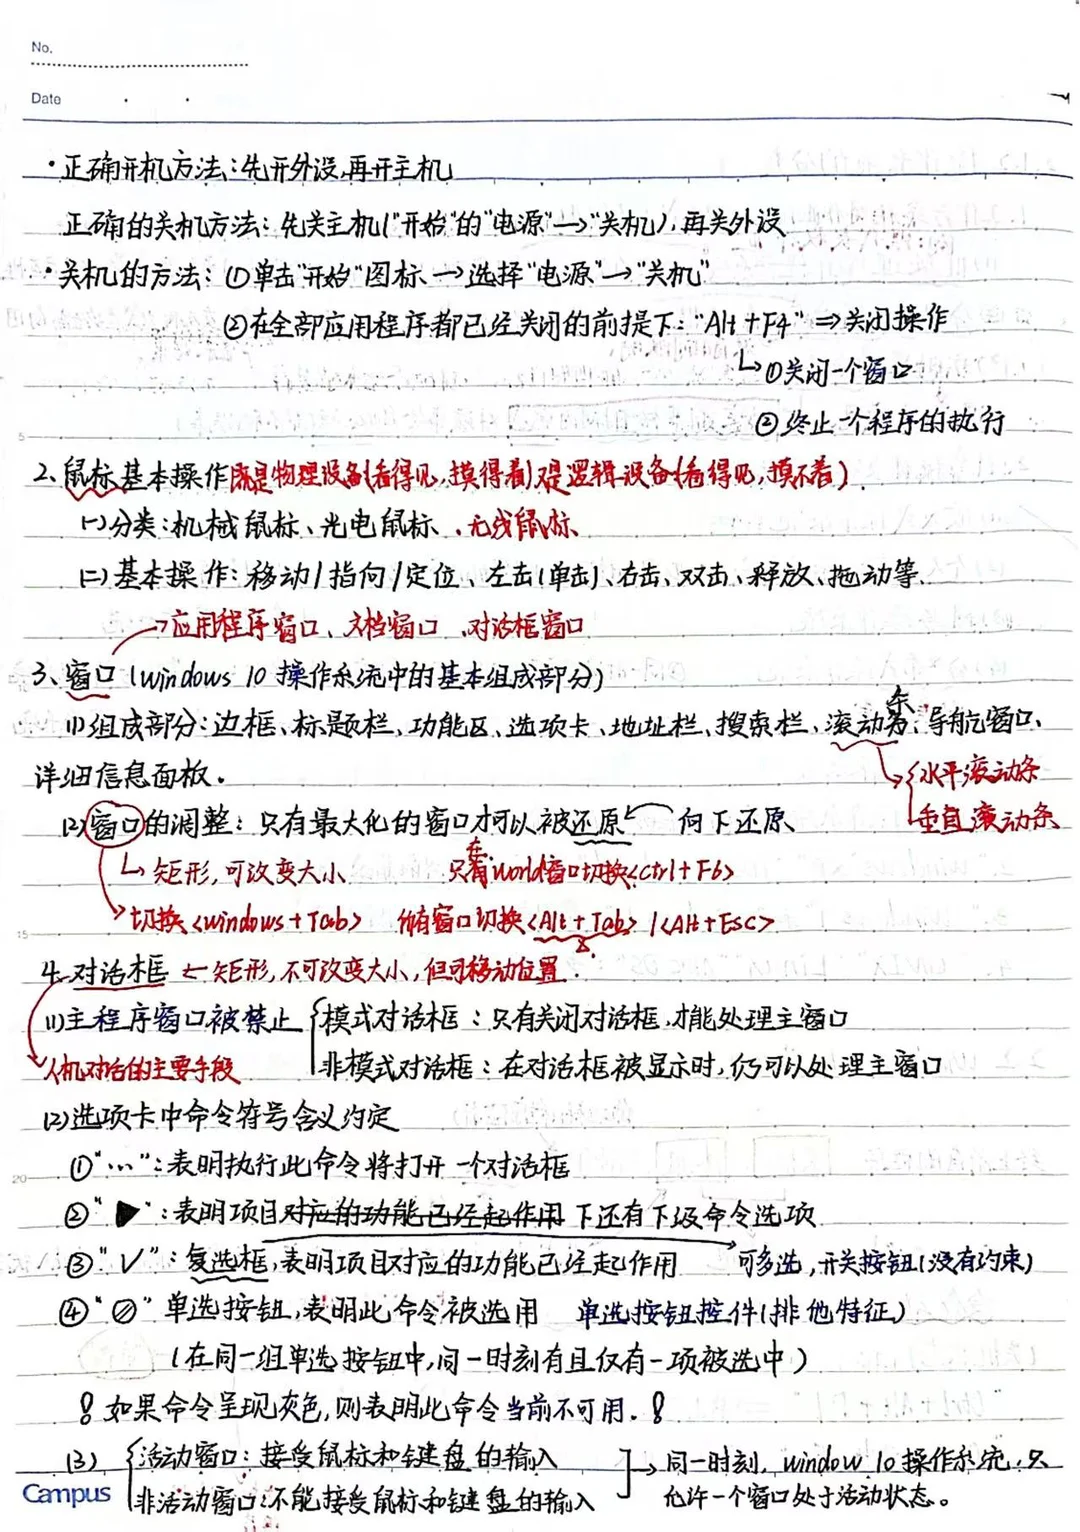 No.
Date
·正确开机方法:先开外设,再开主机
正确的关机方法:先关主机("开始"的"电源"→"关机"),再关外设
·关机的方法:①单击"开始"图标→选择"电源"→"关机"
②在全部应用程序都已经关闭的前提下:"Alt+F4"⇒关闭操作
↳①关闭一个窗口
②终止一个程序的执行
5
2、鼠标基本操作既是物理设备(看得见,摸得着)又是逻辑设备(看得见,摸不着)
(一)分类:机械鼠标、光电鼠标、无线鼠标
(二)基本操作:移动/指向/定位、左击(单击)、右击、双击、释放、拖动等.
→应用程序窗口、文档窗口、对话框窗口
3、窗口(windows 10 操作系统中的基本组成部分)
(1)组成部分:边框、标题栏、功能区、选项卡、地址栏、搜索栏、滚动条、导航窗口、
详细信息面板.
{水平滚动条
垂直滚动条
(2)窗口的调整:只有最大化的窗口才可以被还原 向下还原
↳矩形,可改变大小 只有在world窗口切换<ctrl+F6>
→切换<windows+Tab> 所有窗口切换<Alt+Tab>/<Alt+Esc>
15
4.对话框←矩形,不可改变大小,但可移动位置.
(1)主程序窗口被禁止{模式对话框:只有关闭对话框,才能处理主窗口
人机对话的主要手段 非模式对话框:在对话框被显示时,仍可以处理主窗口
(2)选项卡中命令符号含义约定
①"…":表明执行此命令将打开一个对话框
20
②"▶":表明项目对应的功能已经起作用下还有下级命令选项
③"√":复选框,表明项目对应的功能已经起作用 可多选,开关按钮(没有约束)
④"⊘"单选按钮,表明此命令被选用 单选按钮控件(排他特征)
(在同一组单选按钮中,同一时刻有且仅有一项被选中)
!如果命令呈现灰色,则表明此命令当前不可用.!
(3){活动窗口:接受鼠标和键盘的输入
非活动窗口:不能接受鼠标和键盘的输入
→同一时刻,window 10操作系统,只
允许一个窗口处于活动状态。
Campus